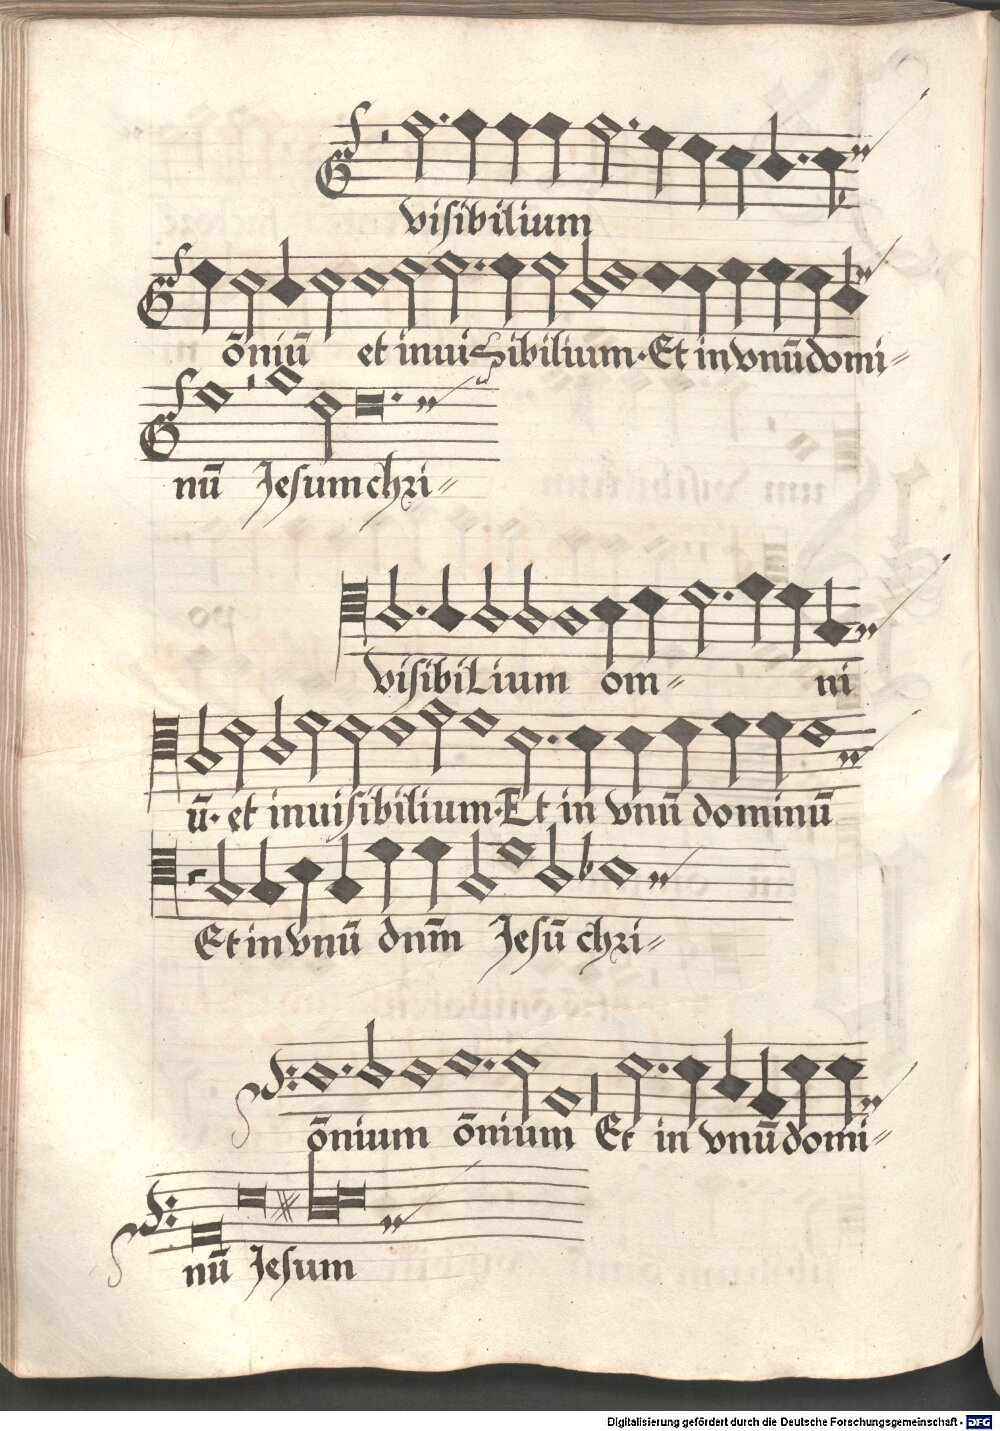 visibilium
ōniū et inuisibilium·Et in vnū domi〃
nū Jesum chri〃
visibilium om〃 ni
ū· et inuisibilium·Et in vnū dominū
Et in vnū dnm̄ Jesū chri〃
ōnium ōnium Et in vnū domi〃
nū Jesum
Digitalisierung gefördert durch die Deutsche Forschungsgemeinschaft - DFG